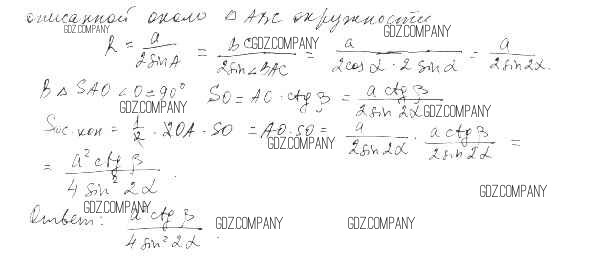 описанной около △ABC окружности
GDZ.COMPANY GDZ.COMPANY
R = a/(2sinA) = BC/(2sin∠BAC) = a/(2cosα · 2sinα) = a/(2sin2α).
GDZ.COMPANY
В △SAO ∠O = 90° SO = AO · ctgβ = a ctgβ/(2sin2α)
GDZ.COMPANY GDZ.COMPANY
Sос.кон = 1/2 · 2OA · SO = AO · SO = a/(2sin2α) · a ctgβ/(2sin2α) =
GDZ.COMPANY
= a² ctgβ/(4sin²2α).
GDZ.COMPANY
GDZ.COMPANY
Ответ: a² ctgβ/(4sin²2α).
GDZ.COMPANY GDZ.COMPANY